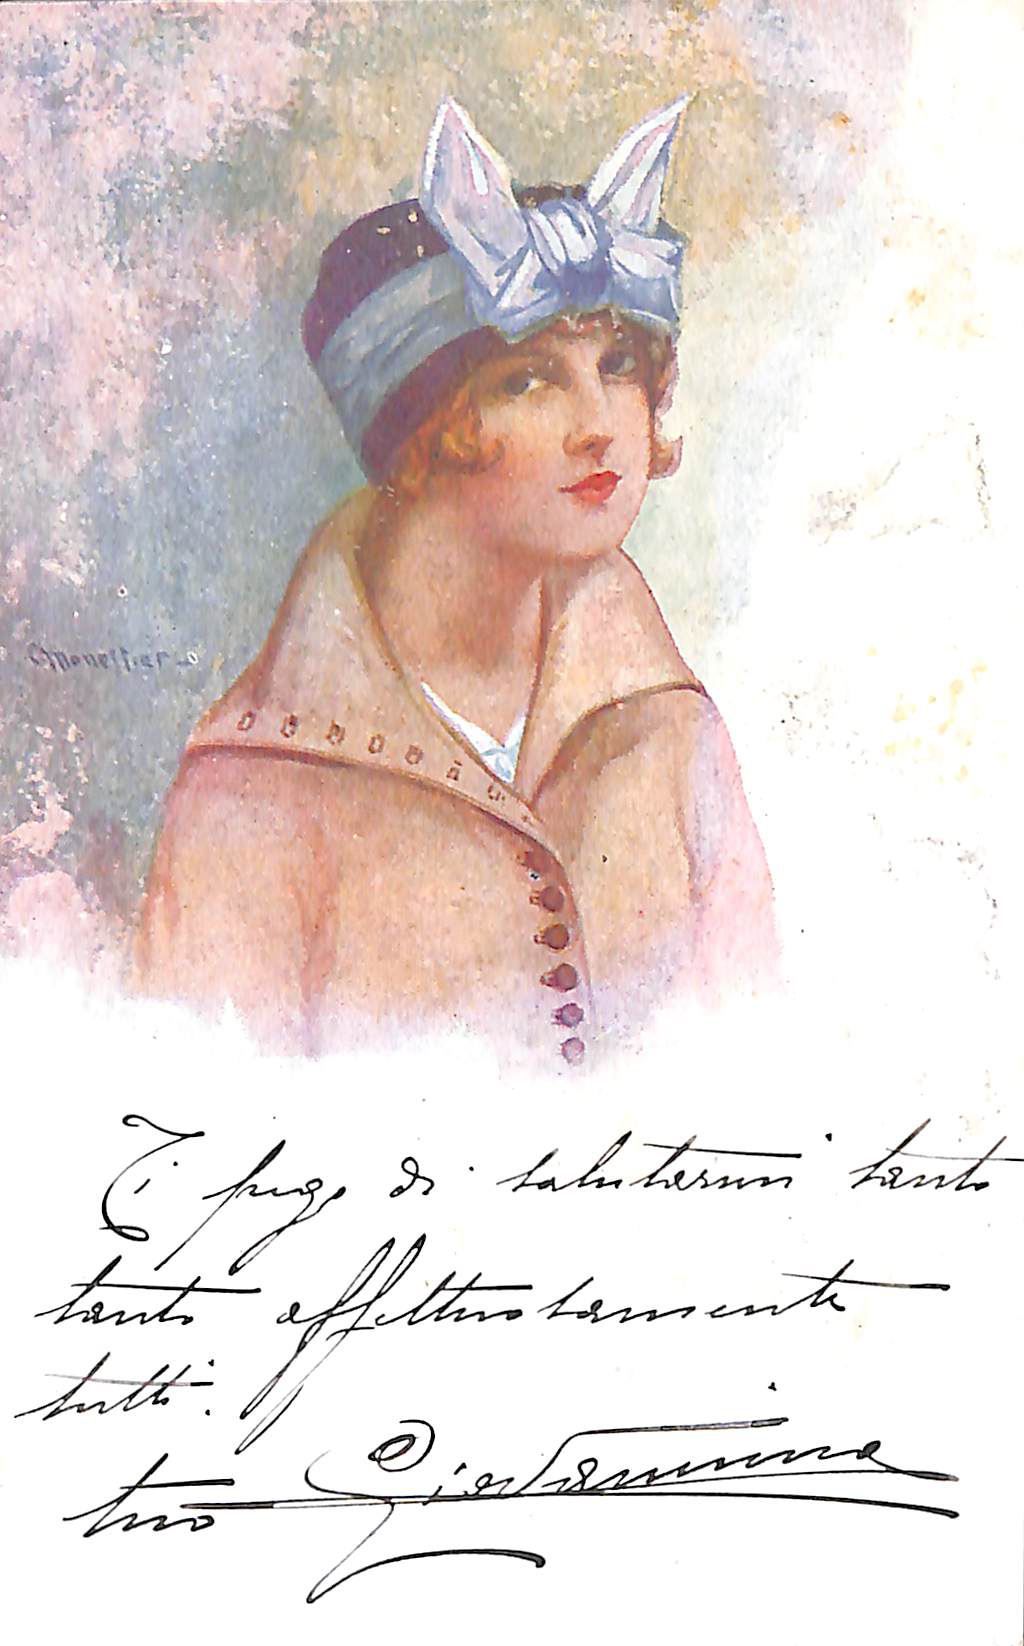 Ti prego di salutarmi tanto
tanto affettuosamente
tutti.
tua Giovannina